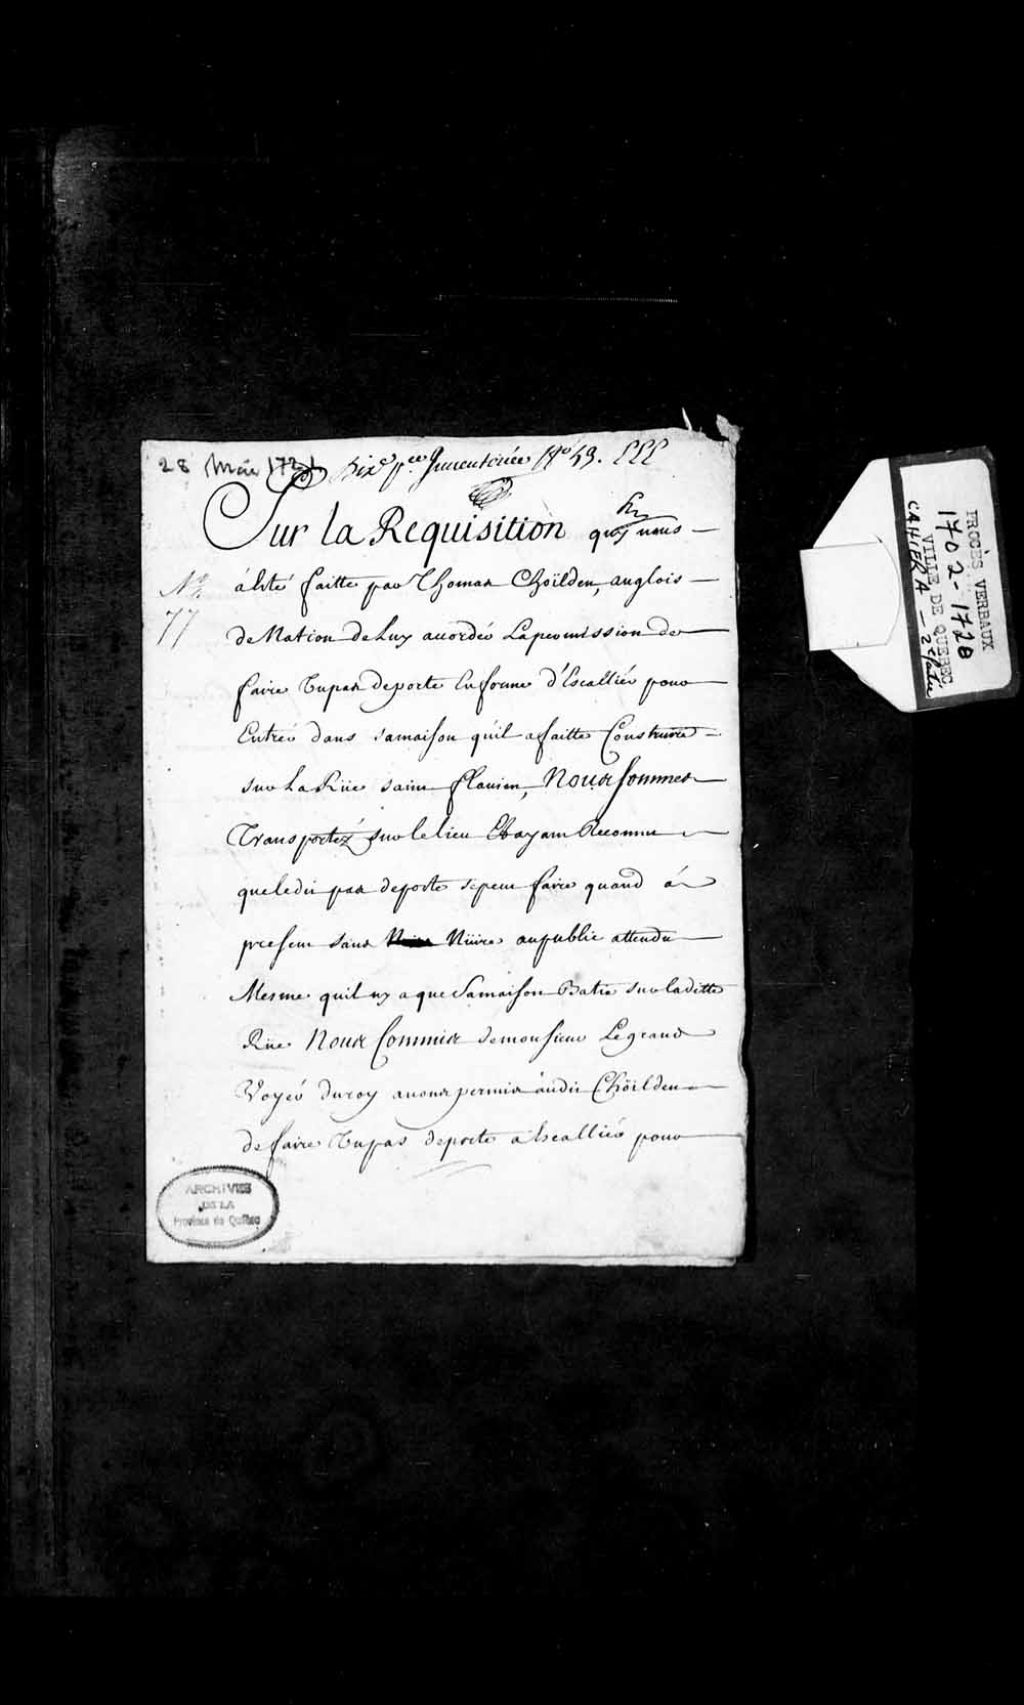 28 Mai 1721 Dixe pce Inventoriée No 49. EEE
Sur la Requisition quoy nous
No
77
à lité faitte par Thomas Choïlden, anglois
de Nation de Luy accorder La permission de
faire Un pas de porte En forme d'Escallier pour
Entrer dans samaison quil a faitte Construire
sur La Rüe saint flavien, Nous sommes
Transportez sur le lieu Et ayant Reconnu
que ledit pas de porte se peut faire quand à
present sans Nüire au public attendu
Mesme quil ny a que Samaison Batie sur laditte
Rüe Nous Commis de monsieur Le grand
Voyer du roy avons permis audit Choïlden
de faire Un pas de porte à Escallier pour
ARCHIVES
DE LA
Province de Québec
PROCÈS VERBAUX
1702-1720
VILLE DE QUÉBEC
CAHIER A - 2e Partie